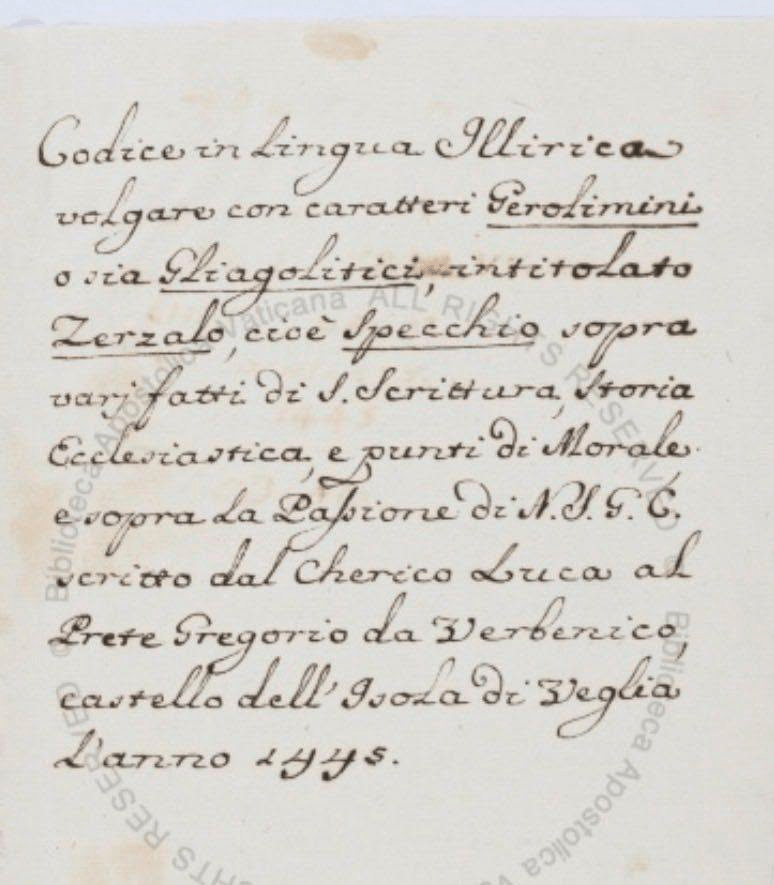 Codice in Lingua Illirica
volgare con caratteri Gerolimini
o sia Gliagolitici, intitolato
Zerzalo, cioè Specchio sopra
varj fatti di S. Scrittura, Storia
Ecclesiastica, e punti di Morale,
e sopra la Passione di N. S. G. C.
scritto dal Cherico Luca al
Prete Gregorio da Verbenico,
castello dell' Isola di Veglia
L'anno 1445.
© Biblioteca Apostolica Vaticana ALL RIGHTS RESERVED
© Biblioteca Apostolica V
GHTS RESERVED